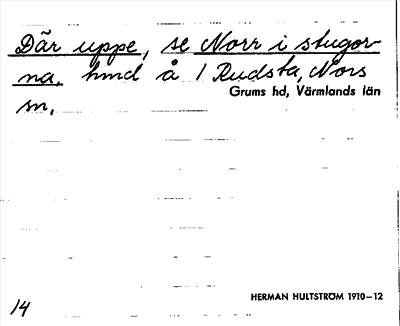 Där uppe, se Norr i stugor-
na, hmd å 1 Rudsta, Nors
sn,
Grums hd, Värmlands län
HERMAN HULTSTRÖM 1910–12
14